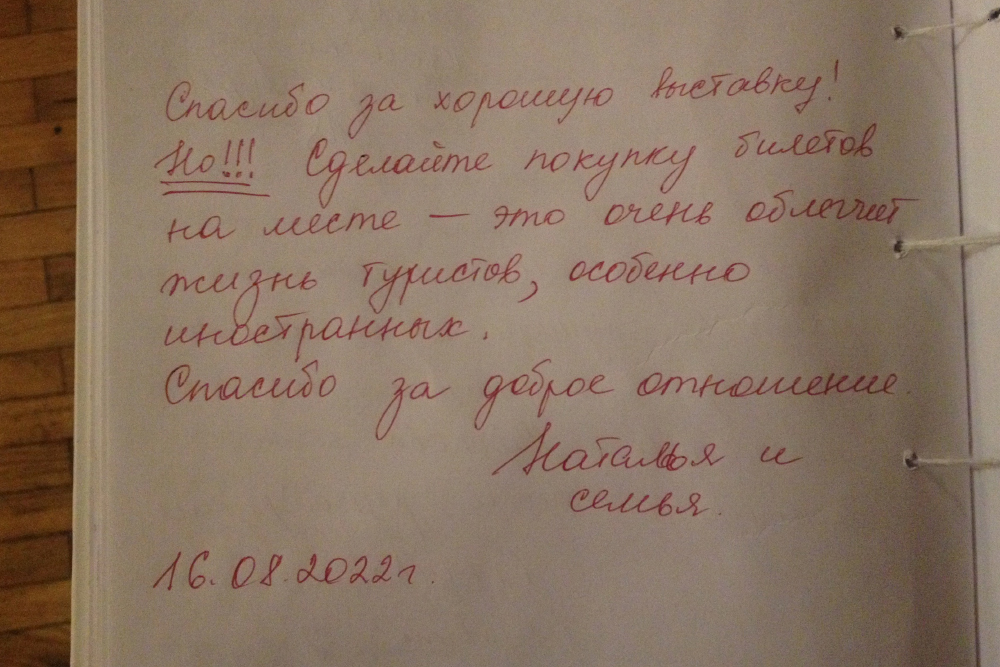 Спасибо за хорошую выставку!
Но!!! Сделайте покупку билетов
на месте — это очень облегчит
жизнь туристов, особенно
иностранных.
Спасибо за доброе отношение.
Наталья и
семья.
16.08.2022г.